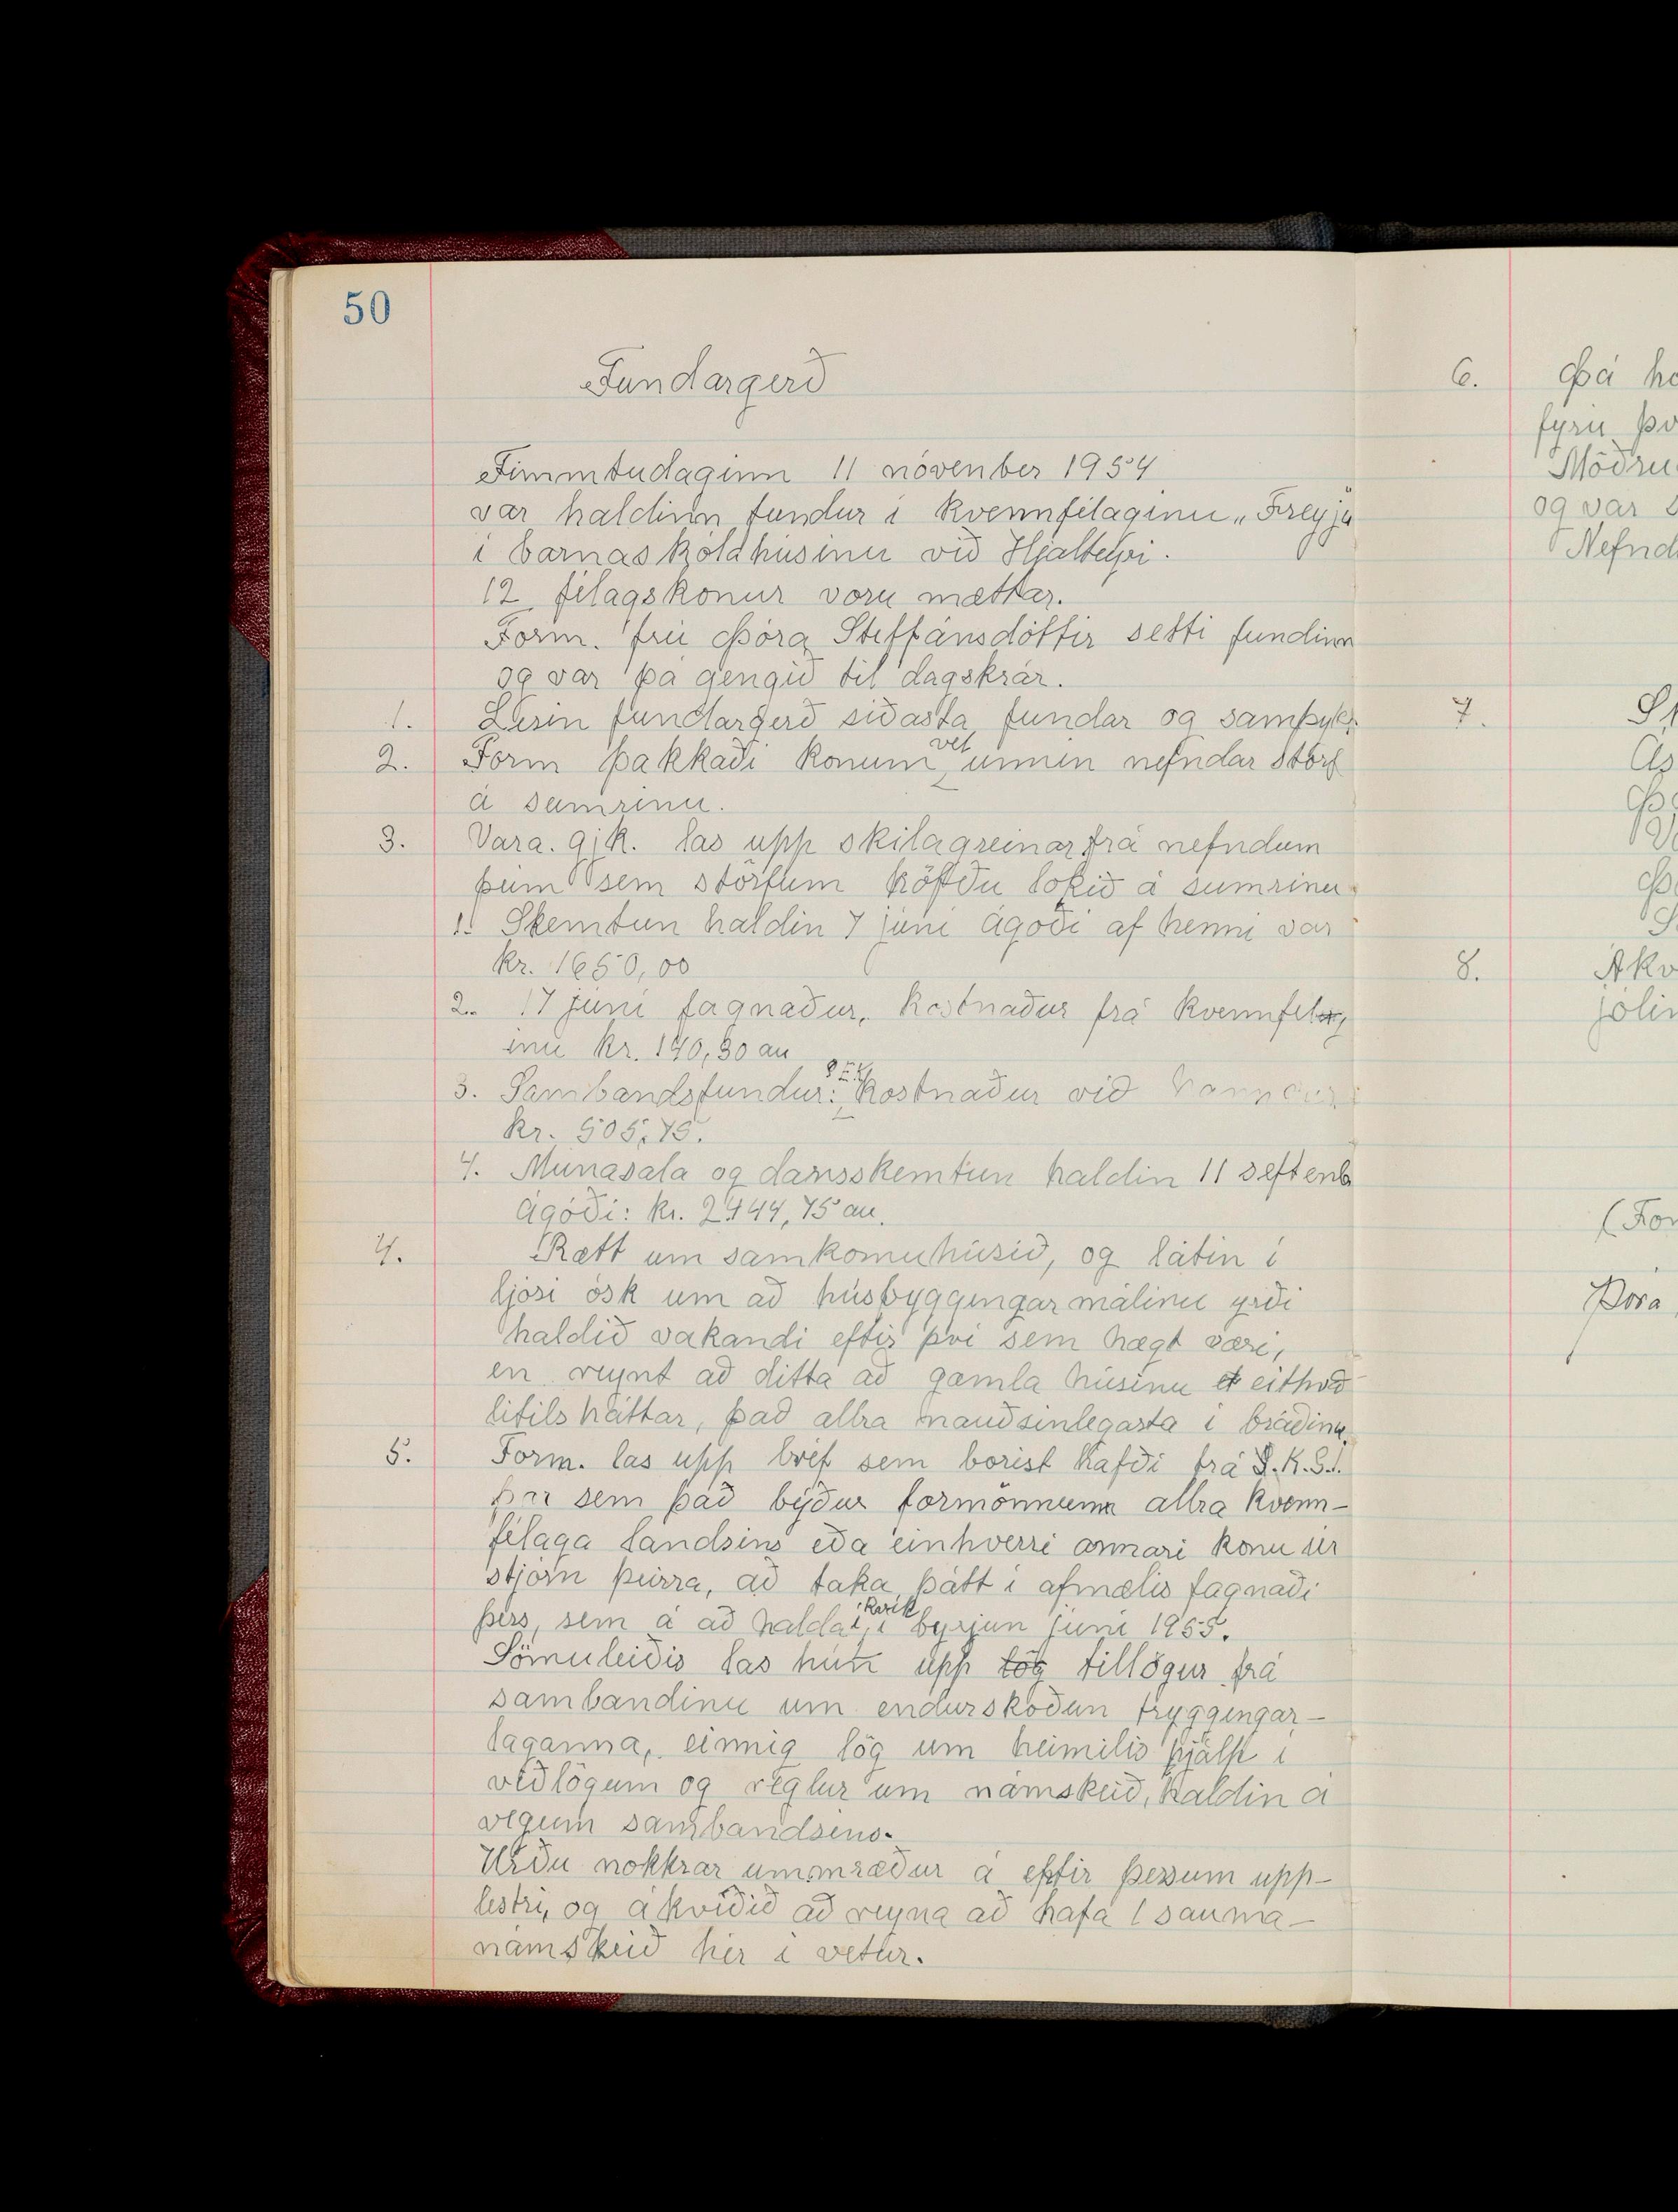 50
Fundargerð
Fimmtudaginn 11 nóvenber 1954
var haldinn fundur í kvennfélaginu „Freyju
í barnaskólahúsinu við Hjalteyri.
12 félagskonur voru mættar.
Form. frú Þóra Steffánsdóttir setti fundinn
og var þá gengið til dagskrár.
1. Lesin fundargerð síðasta fundar og samþykt
2. Form þakkaði konum vel unnin nefndar störf
á sumrinu.
3. Vara. gjk. las upp skilagreinar frá nefndum
þeim sem störfum höfðu lokið á sumrinu
1. Skemtun haldin 7 júní ágóði af henni var
kr. 1650,00
2. 17 júní fagnaður, kostnaður frá kvennfélag
inu kr. 190,30 au
3. Sambandsfundur: S.Ú.K. kostnaður við
kr. 505,75.
4. Munasala og dansskemtun haldin 11 seftenb
ágóði: kr. 2444,75 au.
4. Rætt um samkomuhúsið, og látin í
ljósi ósk um að húsbyggingar málinu yrði
haldið vakandi eftir því sem hægt væri,
en reynt að ditta að gamla húsinu et eithvð
lítils háttar, það allra nauðsinlegasta í bráðina.
5. Form. las upp bréf sem borist hafði frá S.K.S.Í.
þar sem það býður formönnum allra kvenn-
félaga landsins eða einhverri annari konu úr
stjórn þeirra, að taka þátt í afmælis fagnaði
þess, sem á að halda í Rvík í byrjun júní 1955.
Sömuleiðis las hún upp tög tillögur frá
sambandinu um endurskoðun tryggingar-
laganna, einnig lög um heimilis hjálp í
viðlögum og reglur um námskeið, haldin á
vegum sambandsins.
Urðu nokkrar umræður á eftir þessum upp-
lestri, og ákviðið að reyna að hafa 1 sauma-
námskeið hér í vetur.
6. Þá
fyrir
og var
7.
8.
Þóra